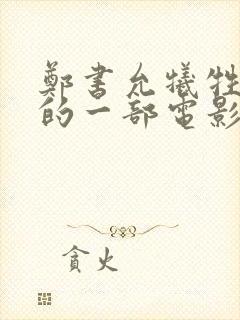 鄭書允犧牲
的一部電影
貪火